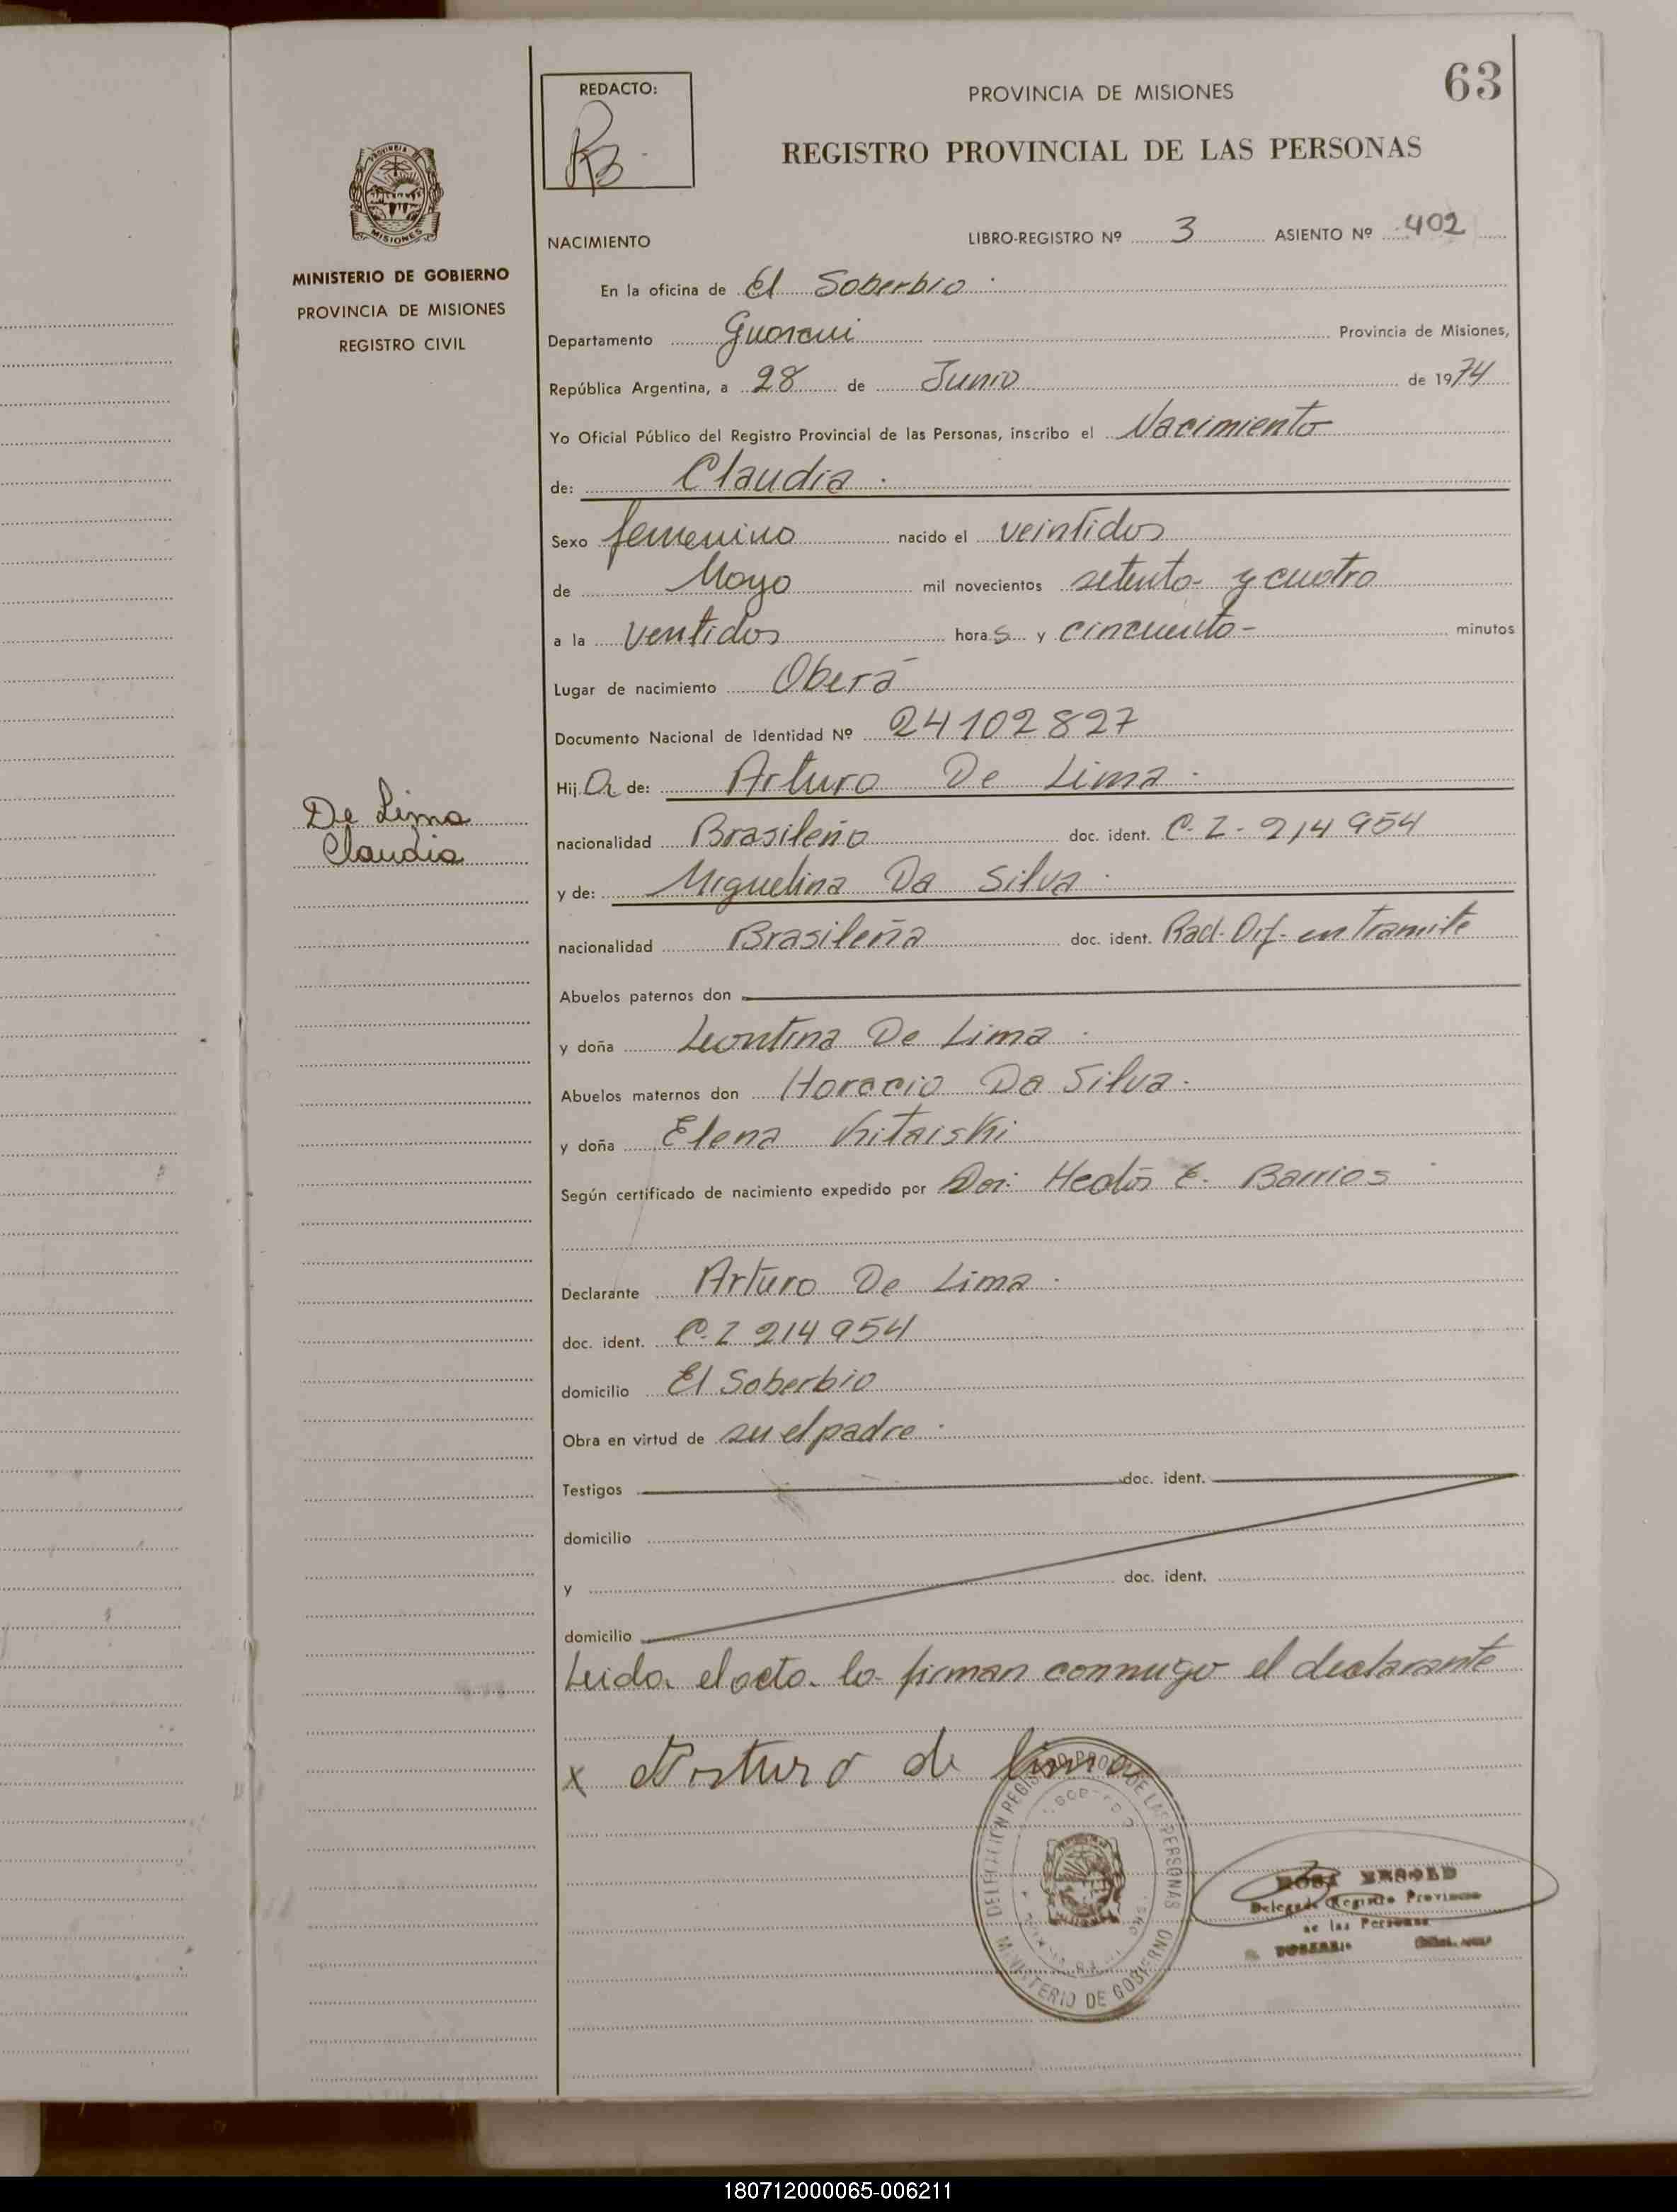 63
REDACTO:
PROVINCIA DE MISIONES
REGISTRO PROVINCIAL DE LAS PERSONAS
PROVINCIA DE
MISIONES
MINISTERIO DE GOBIERNO
PROVINCIA DE MISIONES
REGISTRO CIVIL
De Lima
Claudia
NACIMIENTO LIBRO-REGISTRO Nº 3 ASIENTO Nº 402
En la oficina de El Soberbio
Departamento Guarani Provincia de Misiones,
República Argentina, a 28 de Junio de 1974
Yo Oficial Público del Registro Provincial de las Personas, inscribo el Nacimiento
de: Claudia
Sexo femenino nacido el veintidos
de Mayo mil novecientos setenta y cuatro
a la ventidos horas y cincuenta minutos
Lugar de nacimiento Oberá
Documento Nacional de Identidad Nº 24102827
Hija de: Arturo De Lima
nacionalidad Brasileño doc. ident. C. I. 214954
y de: Miguelina Da Silva
nacionalidad Brasileña doc. ident. Rad. en tramite
Abuelos paternos don
y doña Leontina De Lima
Abuelos maternos don Horacio Da Silva
y doña Elena Kitaiski
Según certificado de nacimiento expedido por E. Barrios
Declarante Arturo De Lima
doc. ident. C. I 214954
domicilio El Soberbio
Obra en virtud de su el padre
Testigos doc. ident.
domicilio
y doc. ident.
domicilio
Leida el acta la firman conmigo el declarante
x Arturo de lima
DELEGACION REGISTRO PROV. DE LAS PERSONAS
MINISTERIO DE GOBIERNO
ROSA
Delegada Registro Provincial
de las Personas
180712000065-006211